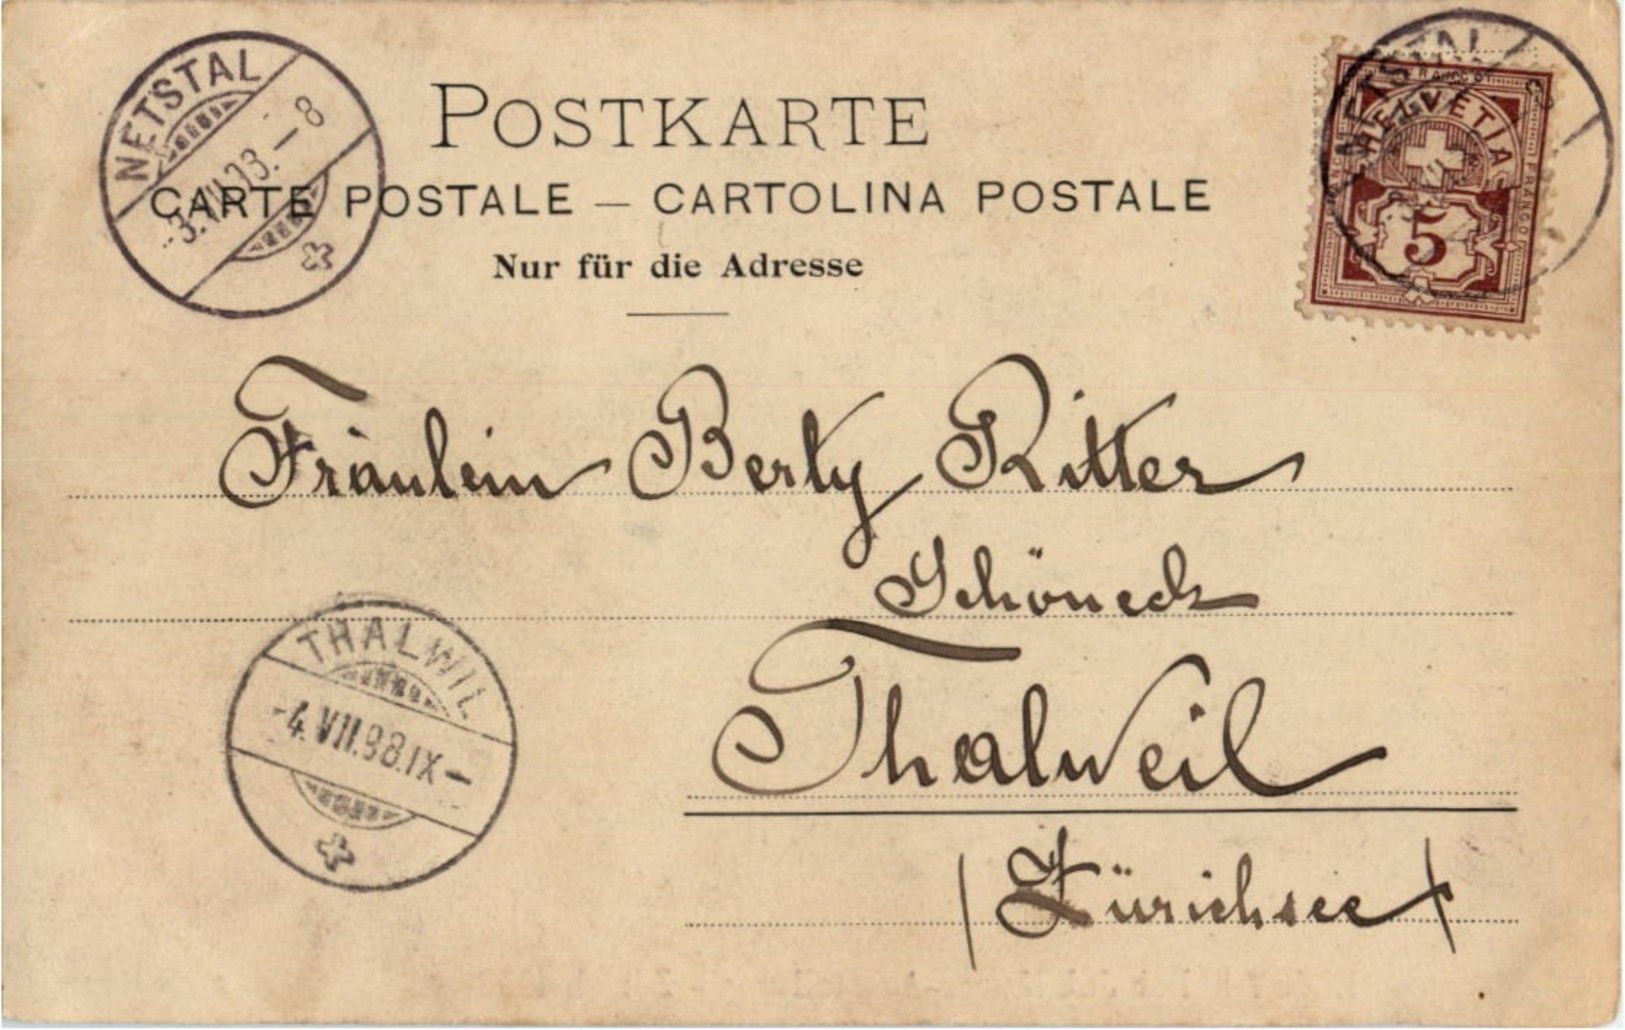 POSTKARTE
CARTE POSTALE — CARTOLINA POSTALE
Nur für die Adresse
NETSTAL
-3.VII.98.-8
NETSTAL
FRANCO
HELVETIA
5
Fräulein Berty Ritter
Schöneck
Thalweil
(Zürichsee)
THALWIL
-4.VII.98.IX-